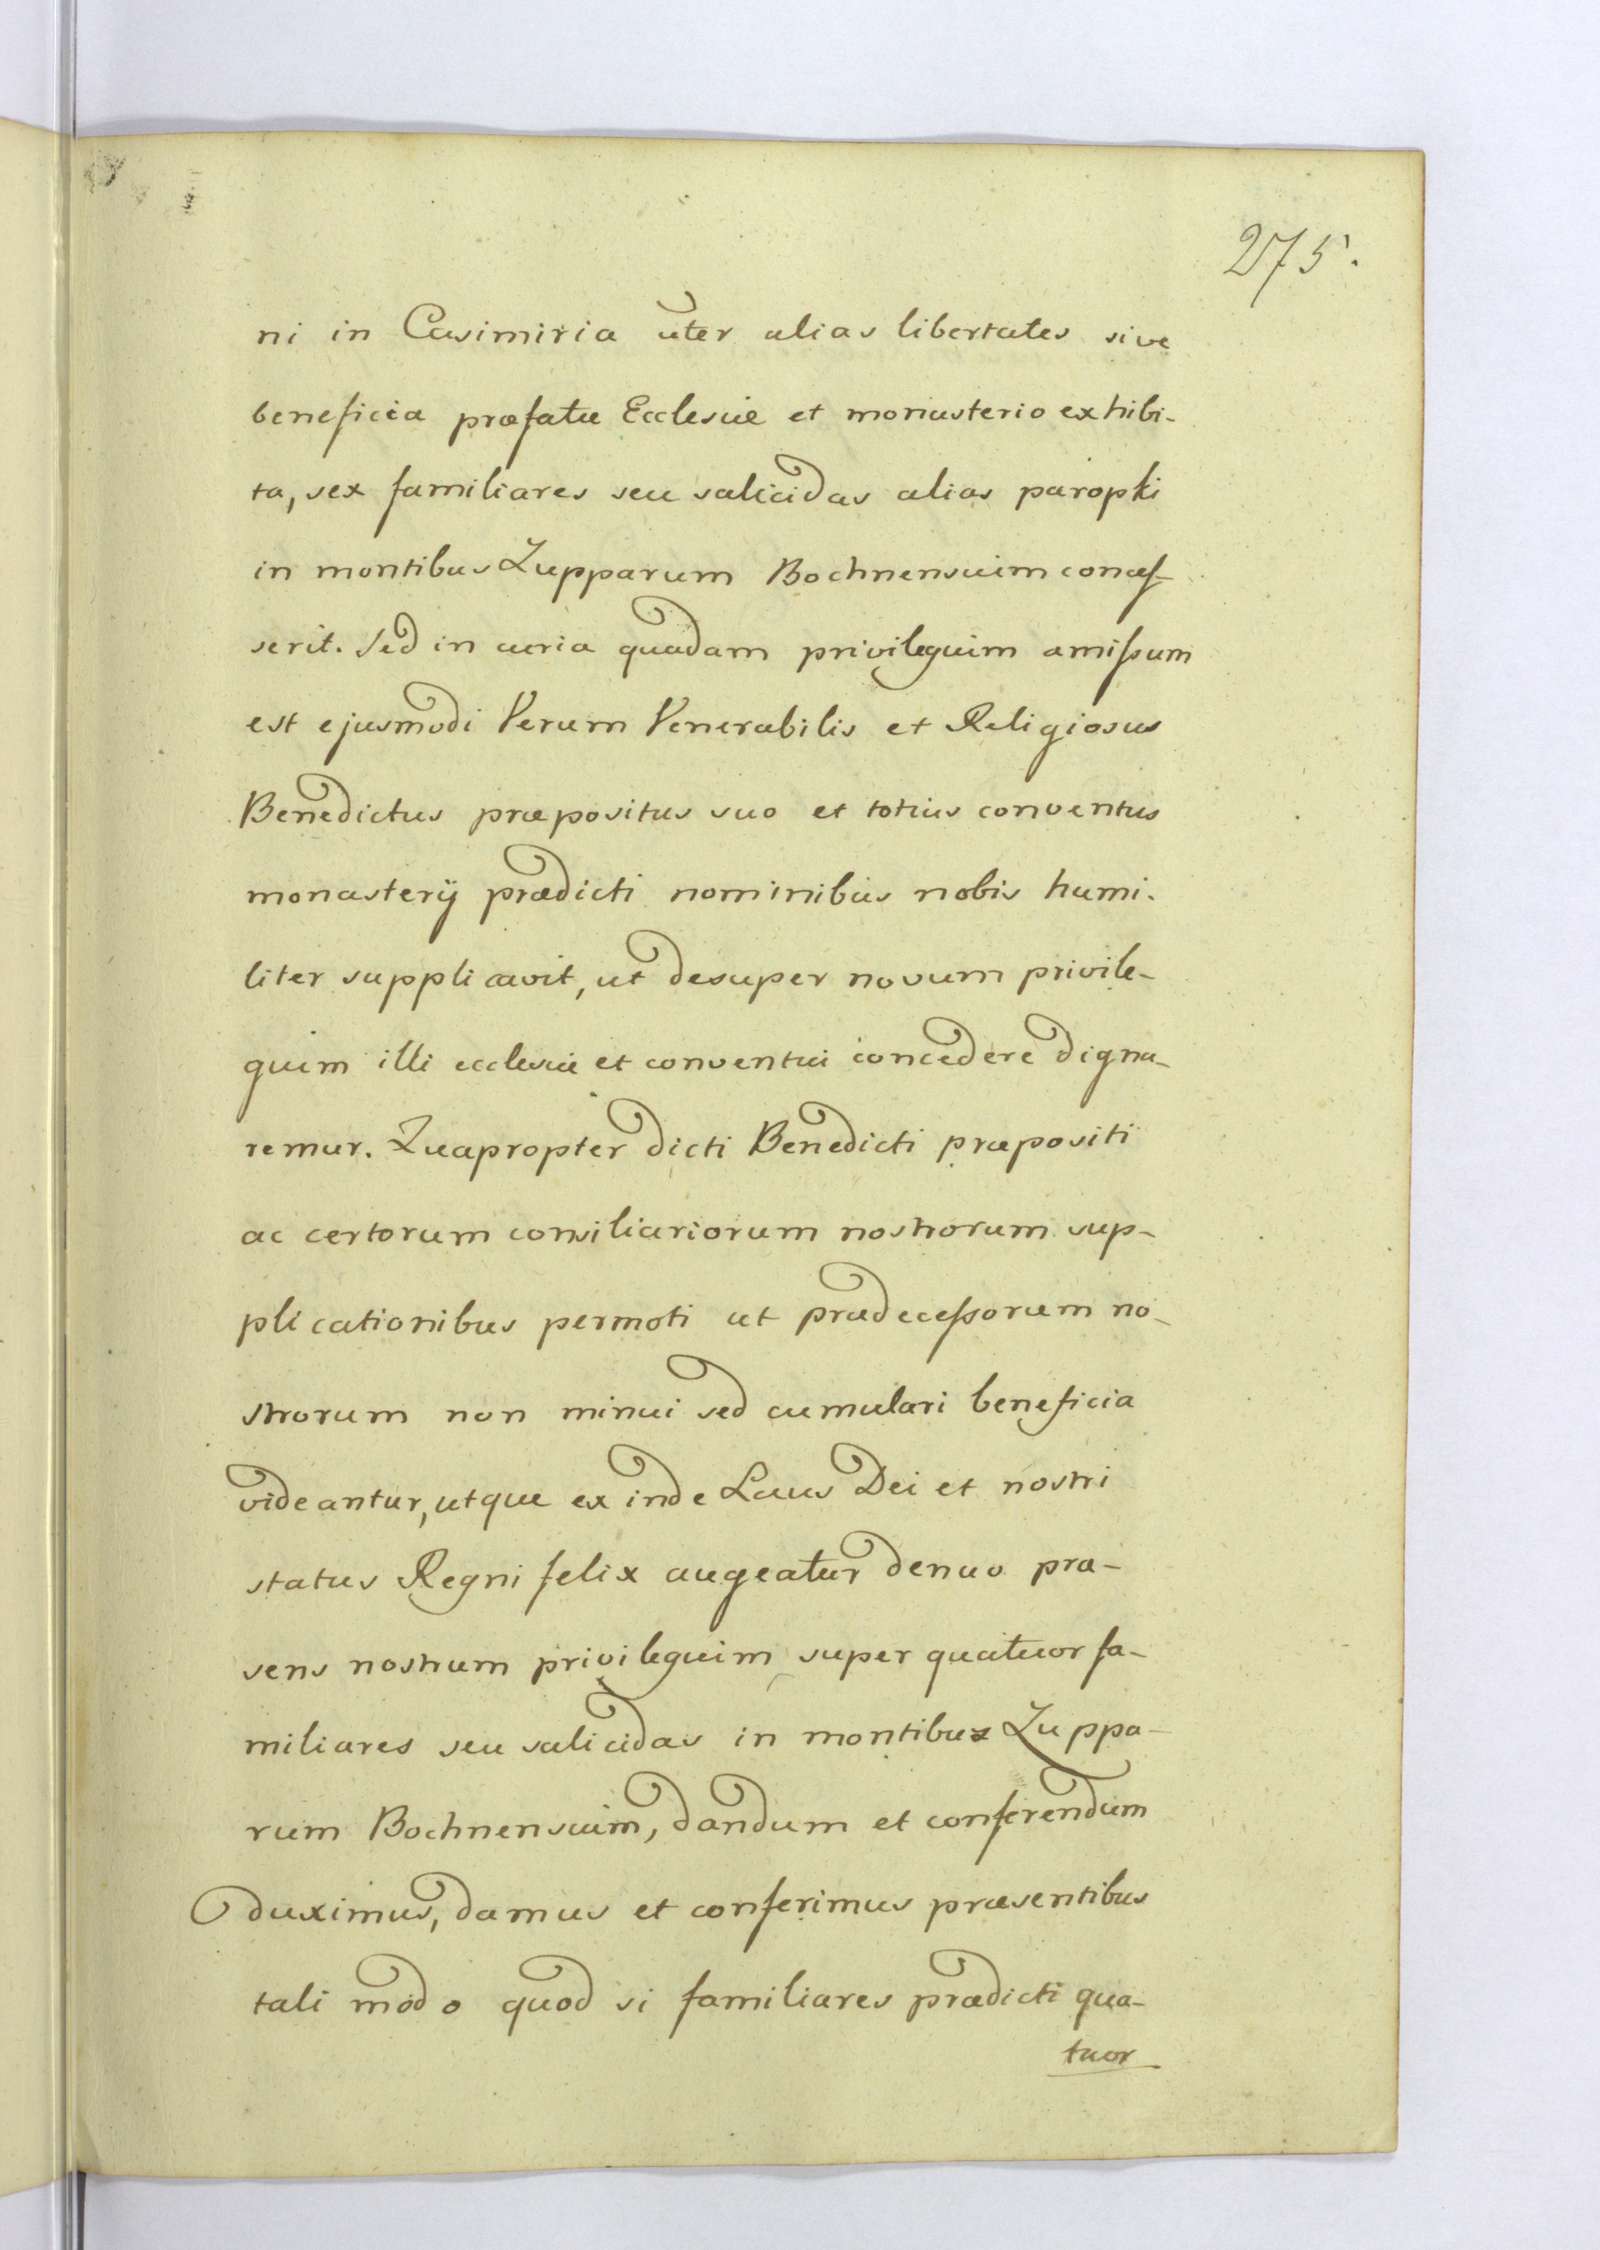 275.
ni in Casimiria uter alias libertates sive
beneficia præfatæ Ecclesiæ et monasterio exhibi-
ta, sex familiares seu salicidas alias paropki
in montibus Zupparum Bochnensium concef-
serit. Sed in curia quadam privilegium amißum
est ejusmodi Verum Venerabilis et Religiosus
Benedictus præpositus suo et totius conventus
monasterij prædicti nominibus nobis humi-
liter supplicavit, ut desuper novum privile-
gium illi ecclesiæ et conventui concedere digna-
remur. Quapropter dicti Benedicti præpositi
ac certorum consiliariorum nostrorum sup-
plicationibus permoti ut prædeceßorum no-
strorum non minui sed cumulari beneficia
videantur, utque ex inde Laus Dei et nostri
status Regni felix augeatur denuo præ-
sens nostrum privilegium super quatuor fa-
miliares seu salicidas in montibus Zuppa-
rum Bochnensium, dandum et conferendum
duximus, damus et conferimus præsentibus
tali modo quod si familiares prædicti qua-
tuor